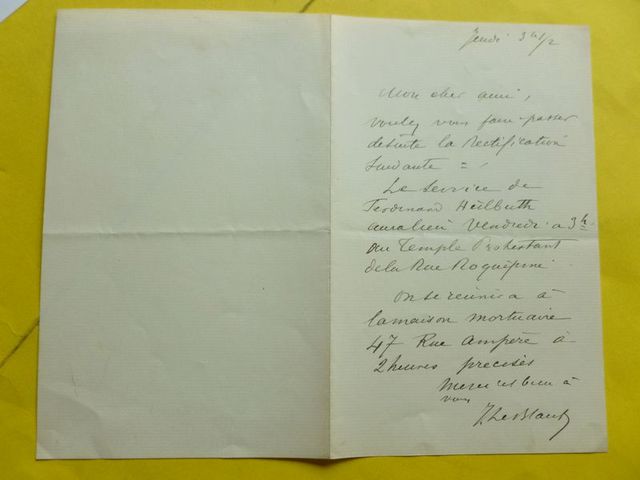 Jeudi 3h 1/2
Mon cher ami,
voulez vous faire passer
desuite la rectification
suivante = ,
Le service de
Ferdinand Heilbuth
aura lieu vendredi a 3h
au Temple Protestant
de la Rue Roquépine
On se réunira à
la maison mortuaire
47 Rue Ampère à
2 heures précises
Merci et bien à
vous
J Le Blant